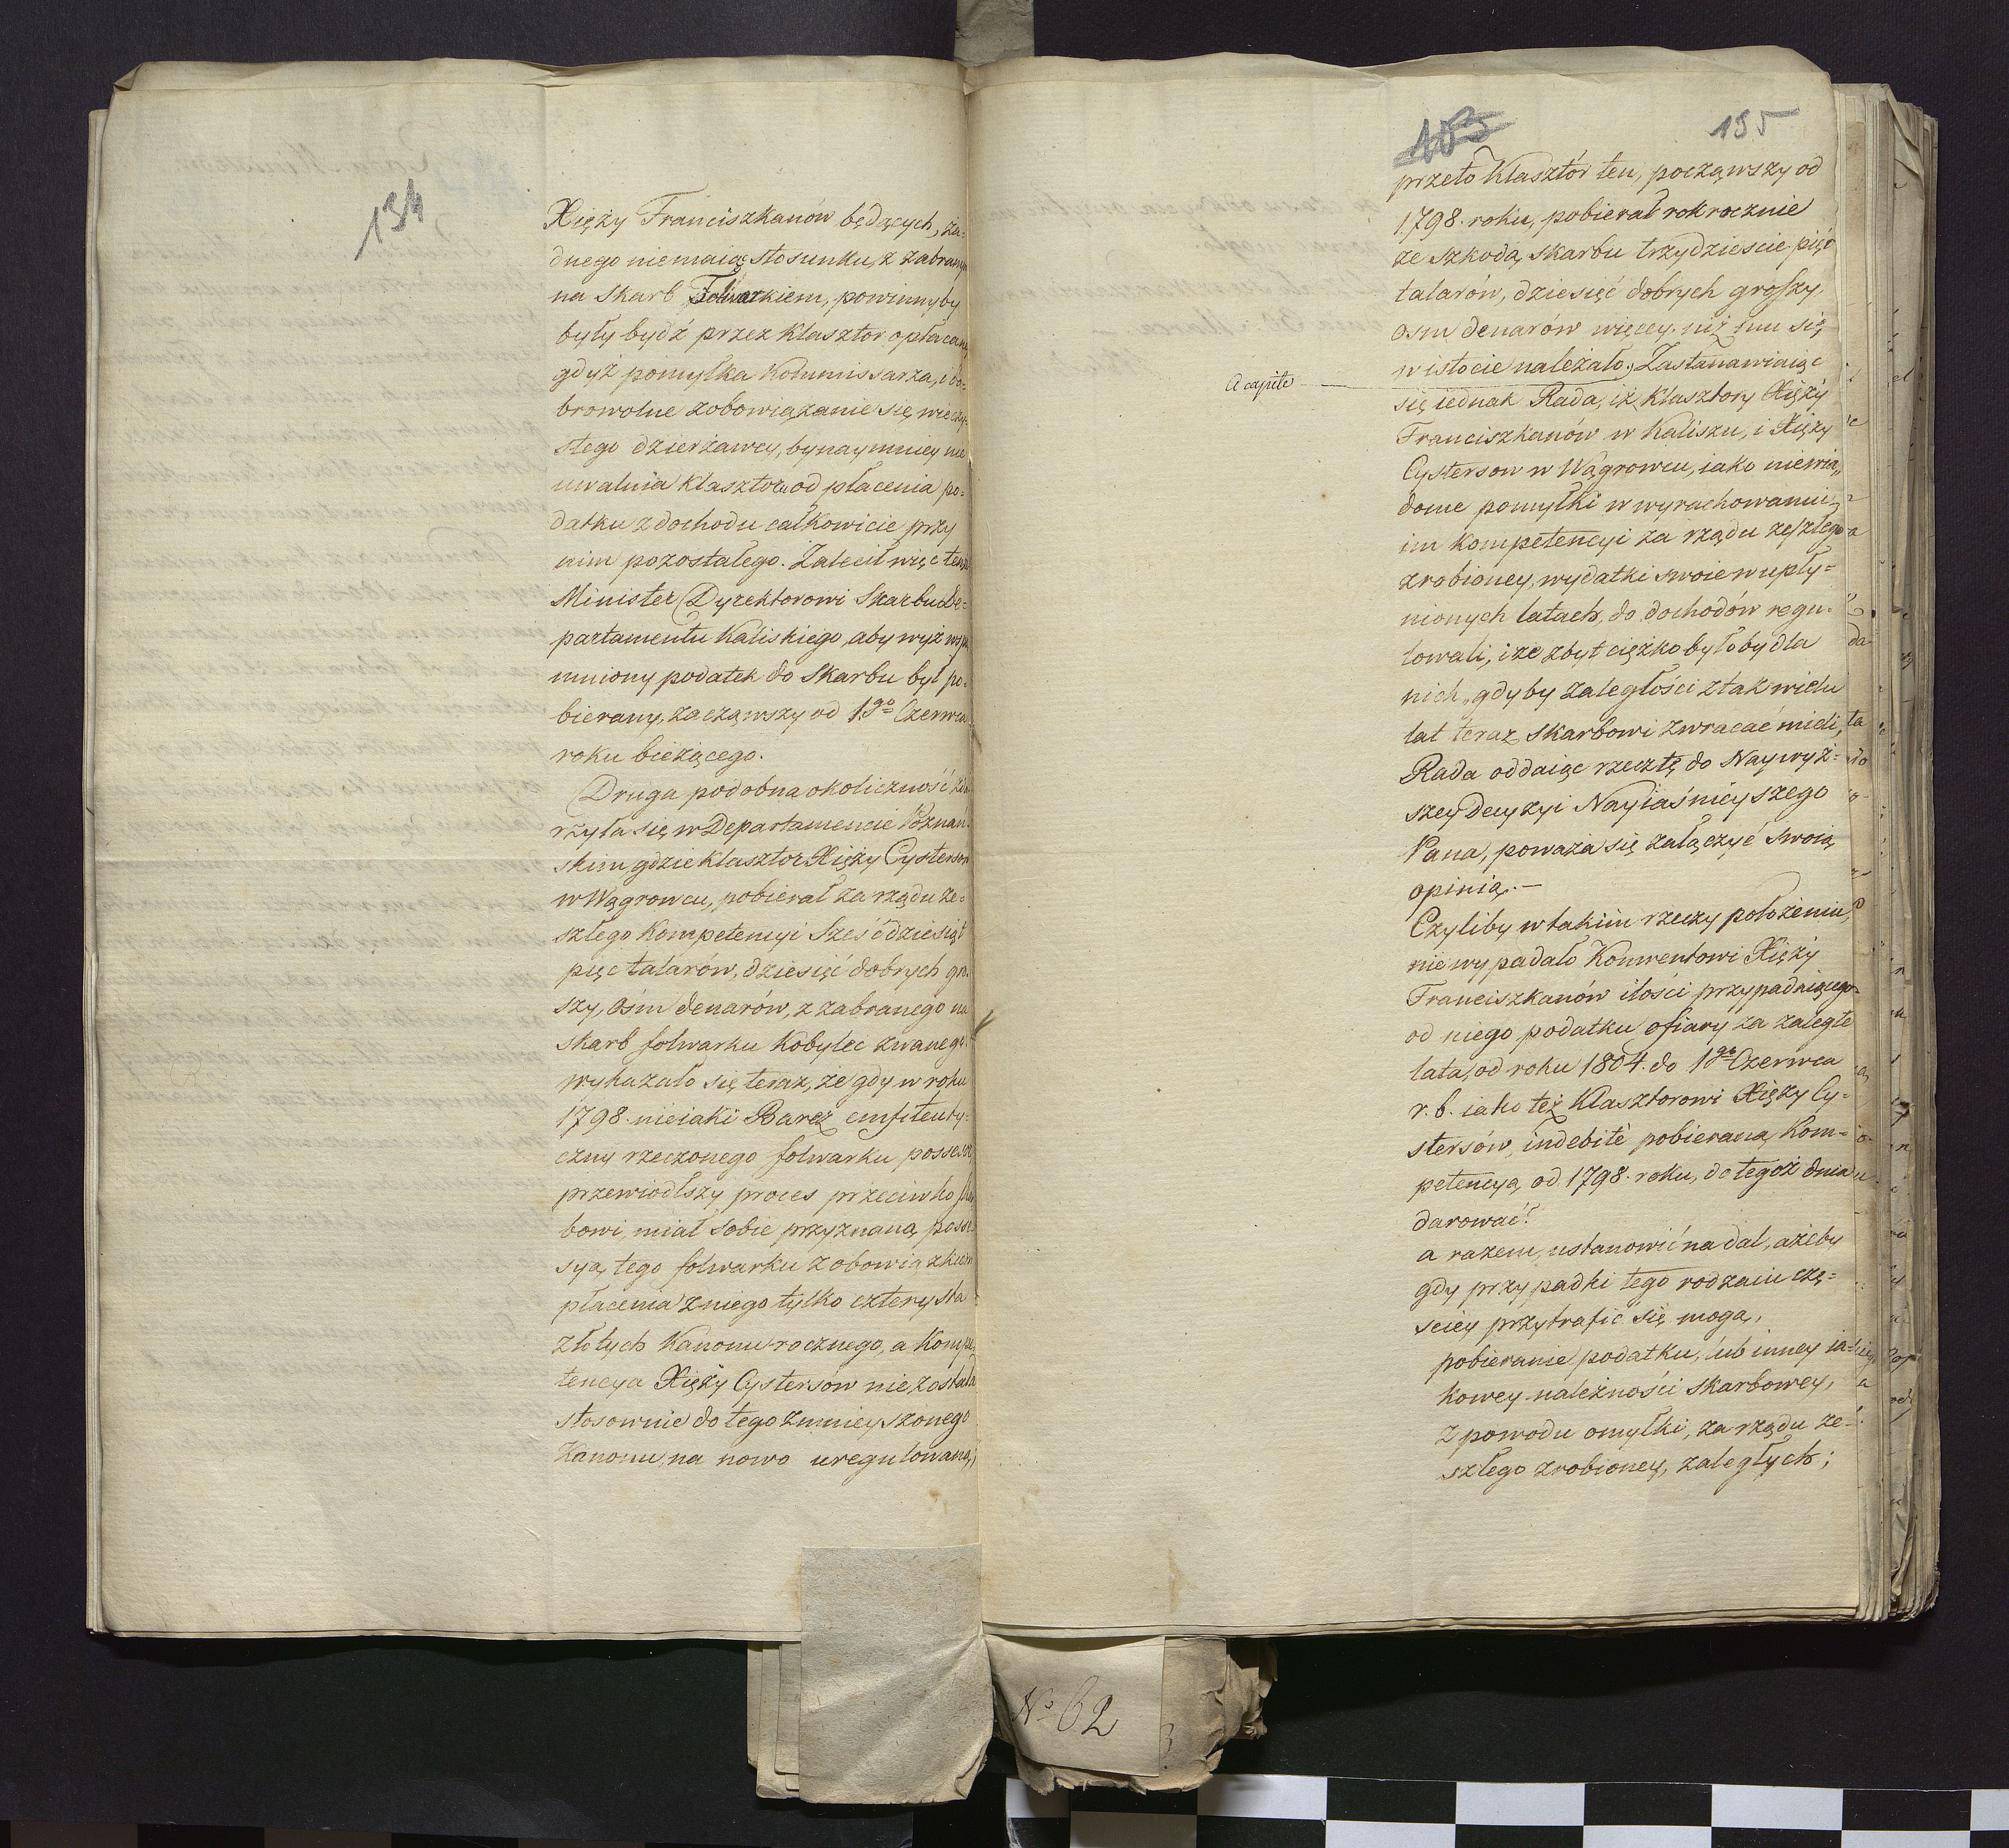 134
Xięży Franciszkanów będących, ża=
dnego niemaią stosunku, z zabranym
na skarb Folwarkiem, powinnyby
były bydź przez klasztor opłacane
gdyż pomyłka Kommissarza, i do=
browolne zobowiązanie się wieczy=
stego dzierżawcy, bynaymniey nie
uwalnia klasztoru od płacenia po=
datku z dochodu całkowicie przy
nim pozostałego. Zalecił więc tenże
Minister Dyrektorowi Skarbu De=
partamentu Kaliskiego, aby wyż wspo
mniony podatek do Skarbu był po=
bierany, zacząwszy od 1go Czerwca
roku bieżącego.
Druga podobna okoliczność zda
rzyła się w Departamencie Poznań
skim, gdzie klasztor Xięży Cystersow
w Wągrowcu, pobierał za rządu ze=
szłego Kompetencyi Sześćdziesiąt
pięc talarów, dziesięć dobrych gro
szy, ośm denarów, z zabranego na
skarb folwarku Kobylec zwanego.
wykazało się teraz, że gdy w roku
1798. nieiaki Barez emfiteuty=
czny rzeczonego folwarku possessor,
przewiodłszy proces przeciwko skar
bowi, miał sobie przyznaną posse=
syą tego folwarku z obowiązkiem
płacenia z niego tylko czterysta
złotych Kanonu rocznego, a kompe
tencya Xięży Cystersów nie została
stosownie do tego zmnieyszonego
Kanonu, na nowo uregulowaną,
135
przeto klasztór ten, począwszy od
1798. roku, pobierał rok rocznie
ze szkodą skarbu trzydzieście pięć
talarów, dziesięć dobrych groszy,
osm denarów więcey, niż mu się
w istocie należało. Zastanawiaiąc
a capite
się iednak Rada, iż klasztory Xięży
Franciszkanów w Kaliszu, i Xięży
Cystersow w Wągrowcu, iako niewia„
dome pomyłki w wyrachowaniu
im kompetencyi za rządu zeszłego
zrobioney, wydatki swoie w upły=
nionych latach, do dochodów regu=
lowali, i że zbyt ciężko byłoby dla
nich, gdyby zaległości z tak wielu
lat teraz skarbowi zwracać mieli,
Rada oddaiąc rzecz tę do Naywyż=
szey decyzyi Nayiaśnieyszego
Pana, poważa się załączyć swoią
opinią.—
Czyliby w takim rzeczy położeniu,
nie wypadało Konwentowi Xięży
Franciszkanów ilości przypadaiącego
od niego podatku ofiary za zaległe
lata, od roku 1804. do 1go Czerwca
r. b. iako też Klasztorowi Xięży Cy=
stersów, indebitè pobieraną Kom=
petencyą od 1798. roku, do tegoż dnia
darować?
a razem, ustanowić na dal, ażeby
gdy przypadki tego rodzaiu czę=
sciey przytrafić się mogą,
pobieranie podatku, lub inney ia=
kowey należności skarbowey,
z powodu omyłki, za rządu ze=
szłego zrobioney, zaległych;
No 62